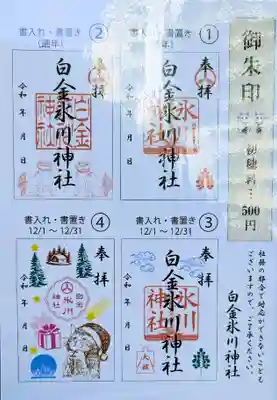 御朱印
初穂料…500円
書入れ・書置き
①
奉拝
白金氷川神社
氷川神社
令和 年 月 日
書入れ・書置き
(通年)
②
奉拝
白金氷川神社
白金神社
令和 年 月 日
書入れ・書置き
12/1 ~ 12/31
③
奉拝
白金氷川神社
氷川神社
令和 年 月 日
書入れ・書置き
12/1 ~ 12/31
④
奉拝
氷川
神社
令和 年 月 日
社務の都合で対応ができないことも
ございますので、ご了承ください。
白金氷川神社